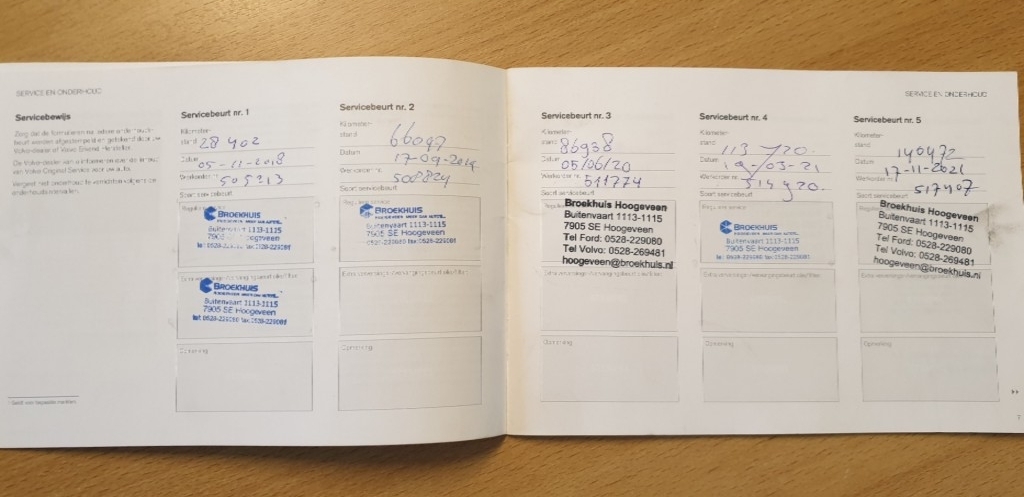 SERVICE EN ONDERHOUD
Servicebewijs
Zorg dat de formulieren na iedere onderhouds-
beurt worden afgestempeld en getekend door uw
Volvo-dealer of Volvo Erkend Hersteller.
van Volvo Original Service voor uw auto.
Servicebeurt nr. 1
Kilometer-
stand 28402
Datum 05-11-2018
Werkorder nr. 505213
Soort servicebeurt
BROEKHUIS
Buitenvaart 1113-1115
7905 SE Hoogeveen
tel: 0528-229080 fax: 0528-229081
BROEKHUIS
Buitenvaart 1113-1115
7905 SE Hoogeveen
tel: 0528-229080 fax: 0528-229081
Opmerking
Servicebeurt nr. 2
Kilometer-
stand 66097
Datum 17-09-2019
Werkorder nr. 508824
Soort servicebeurt
Reguliere service
BROEKHUIS
0528-229080 fax: 0528-229081
Opmerking
Servicebeurt nr. 3
Kilometer-
stand 86938
Datum 05/06/20
Werkorder nr. 511774
Soort servicebeurt
Broekhuis Hoogeveen
Buitenvaart 1113-1115
7905 SE Hoogeveen
Tel Ford: 0528-229080
Tel Volvo: 0528-269481
hoogeveen@broekhuis.nl
Opmerking
SERVICE EN ONDERHOUD
Servicebeurt nr. 4
Kilometer-
stand 113720
Datum 19/03-21
Werkorder nr. 514920
Soort servicebeurt
Reguliere service
BROEKHUIS
Buitenvaart 1113-1115
7905 SE Hoogeveen
tel: 0528-229080 fax: 0528-229081
Opmerking
Servicebeurt nr. 5
Kilometer-
stand 140472
Datum 17-11-2021
Werkorder nr. 517407
Soort servicebeurt
Broekhuis Hoogeveen
Buitenvaart 1113-1115
7905 SE Hoogeveen
Tel Ford: 0528-229080
Tel Volvo: 0528-269481
hoogeveen@broekhuis.nl
Opmerking
7